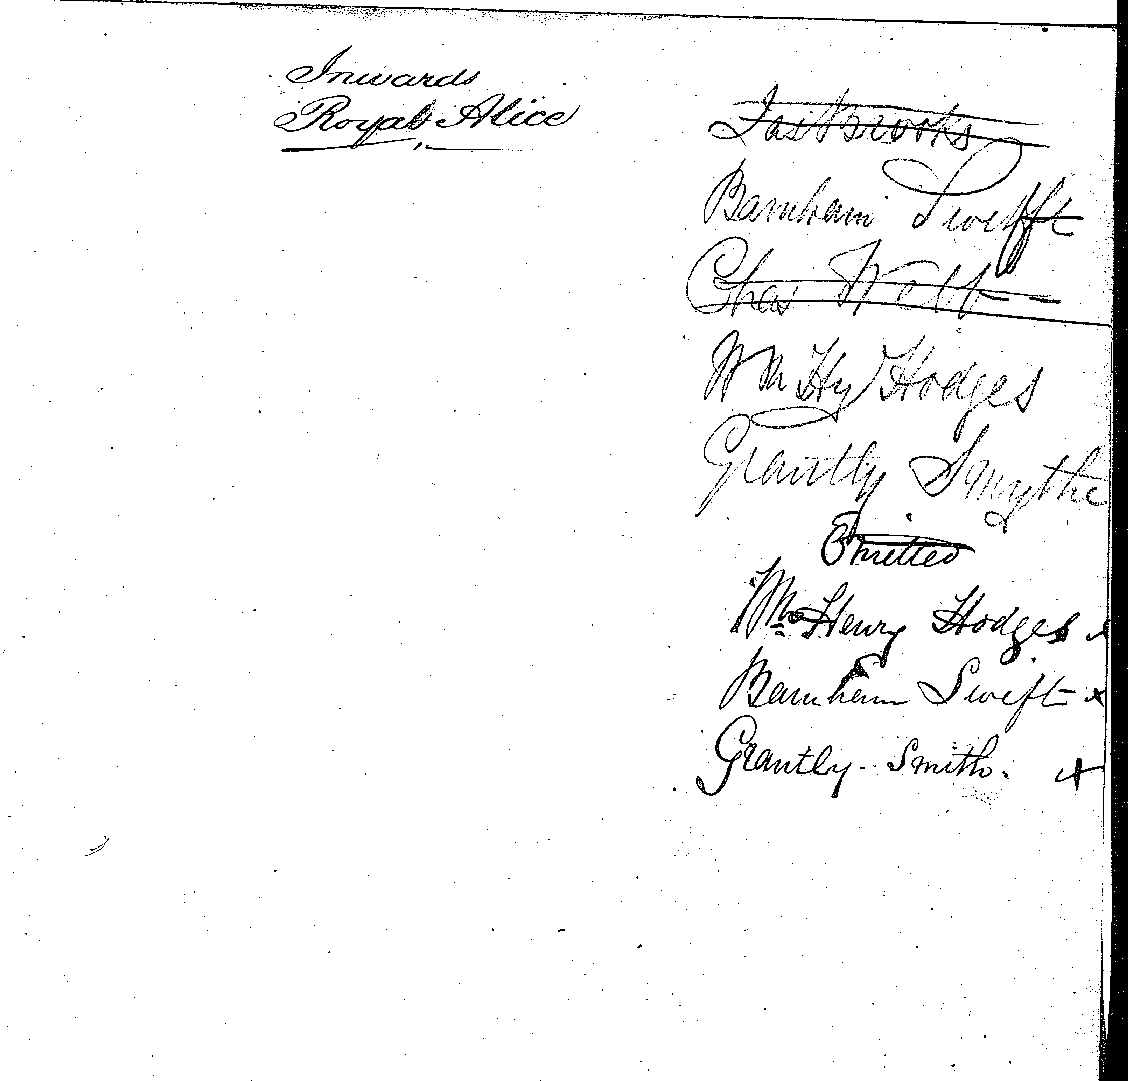 Inwards
Royal Alice
Jas Brooks
Barnham Swifft
Chas Webb
Wm Hy Hodges
Grantly Smythe
Omitted
Wm Henry Hodges x
Barnham Swift x
Grantly Smith. x